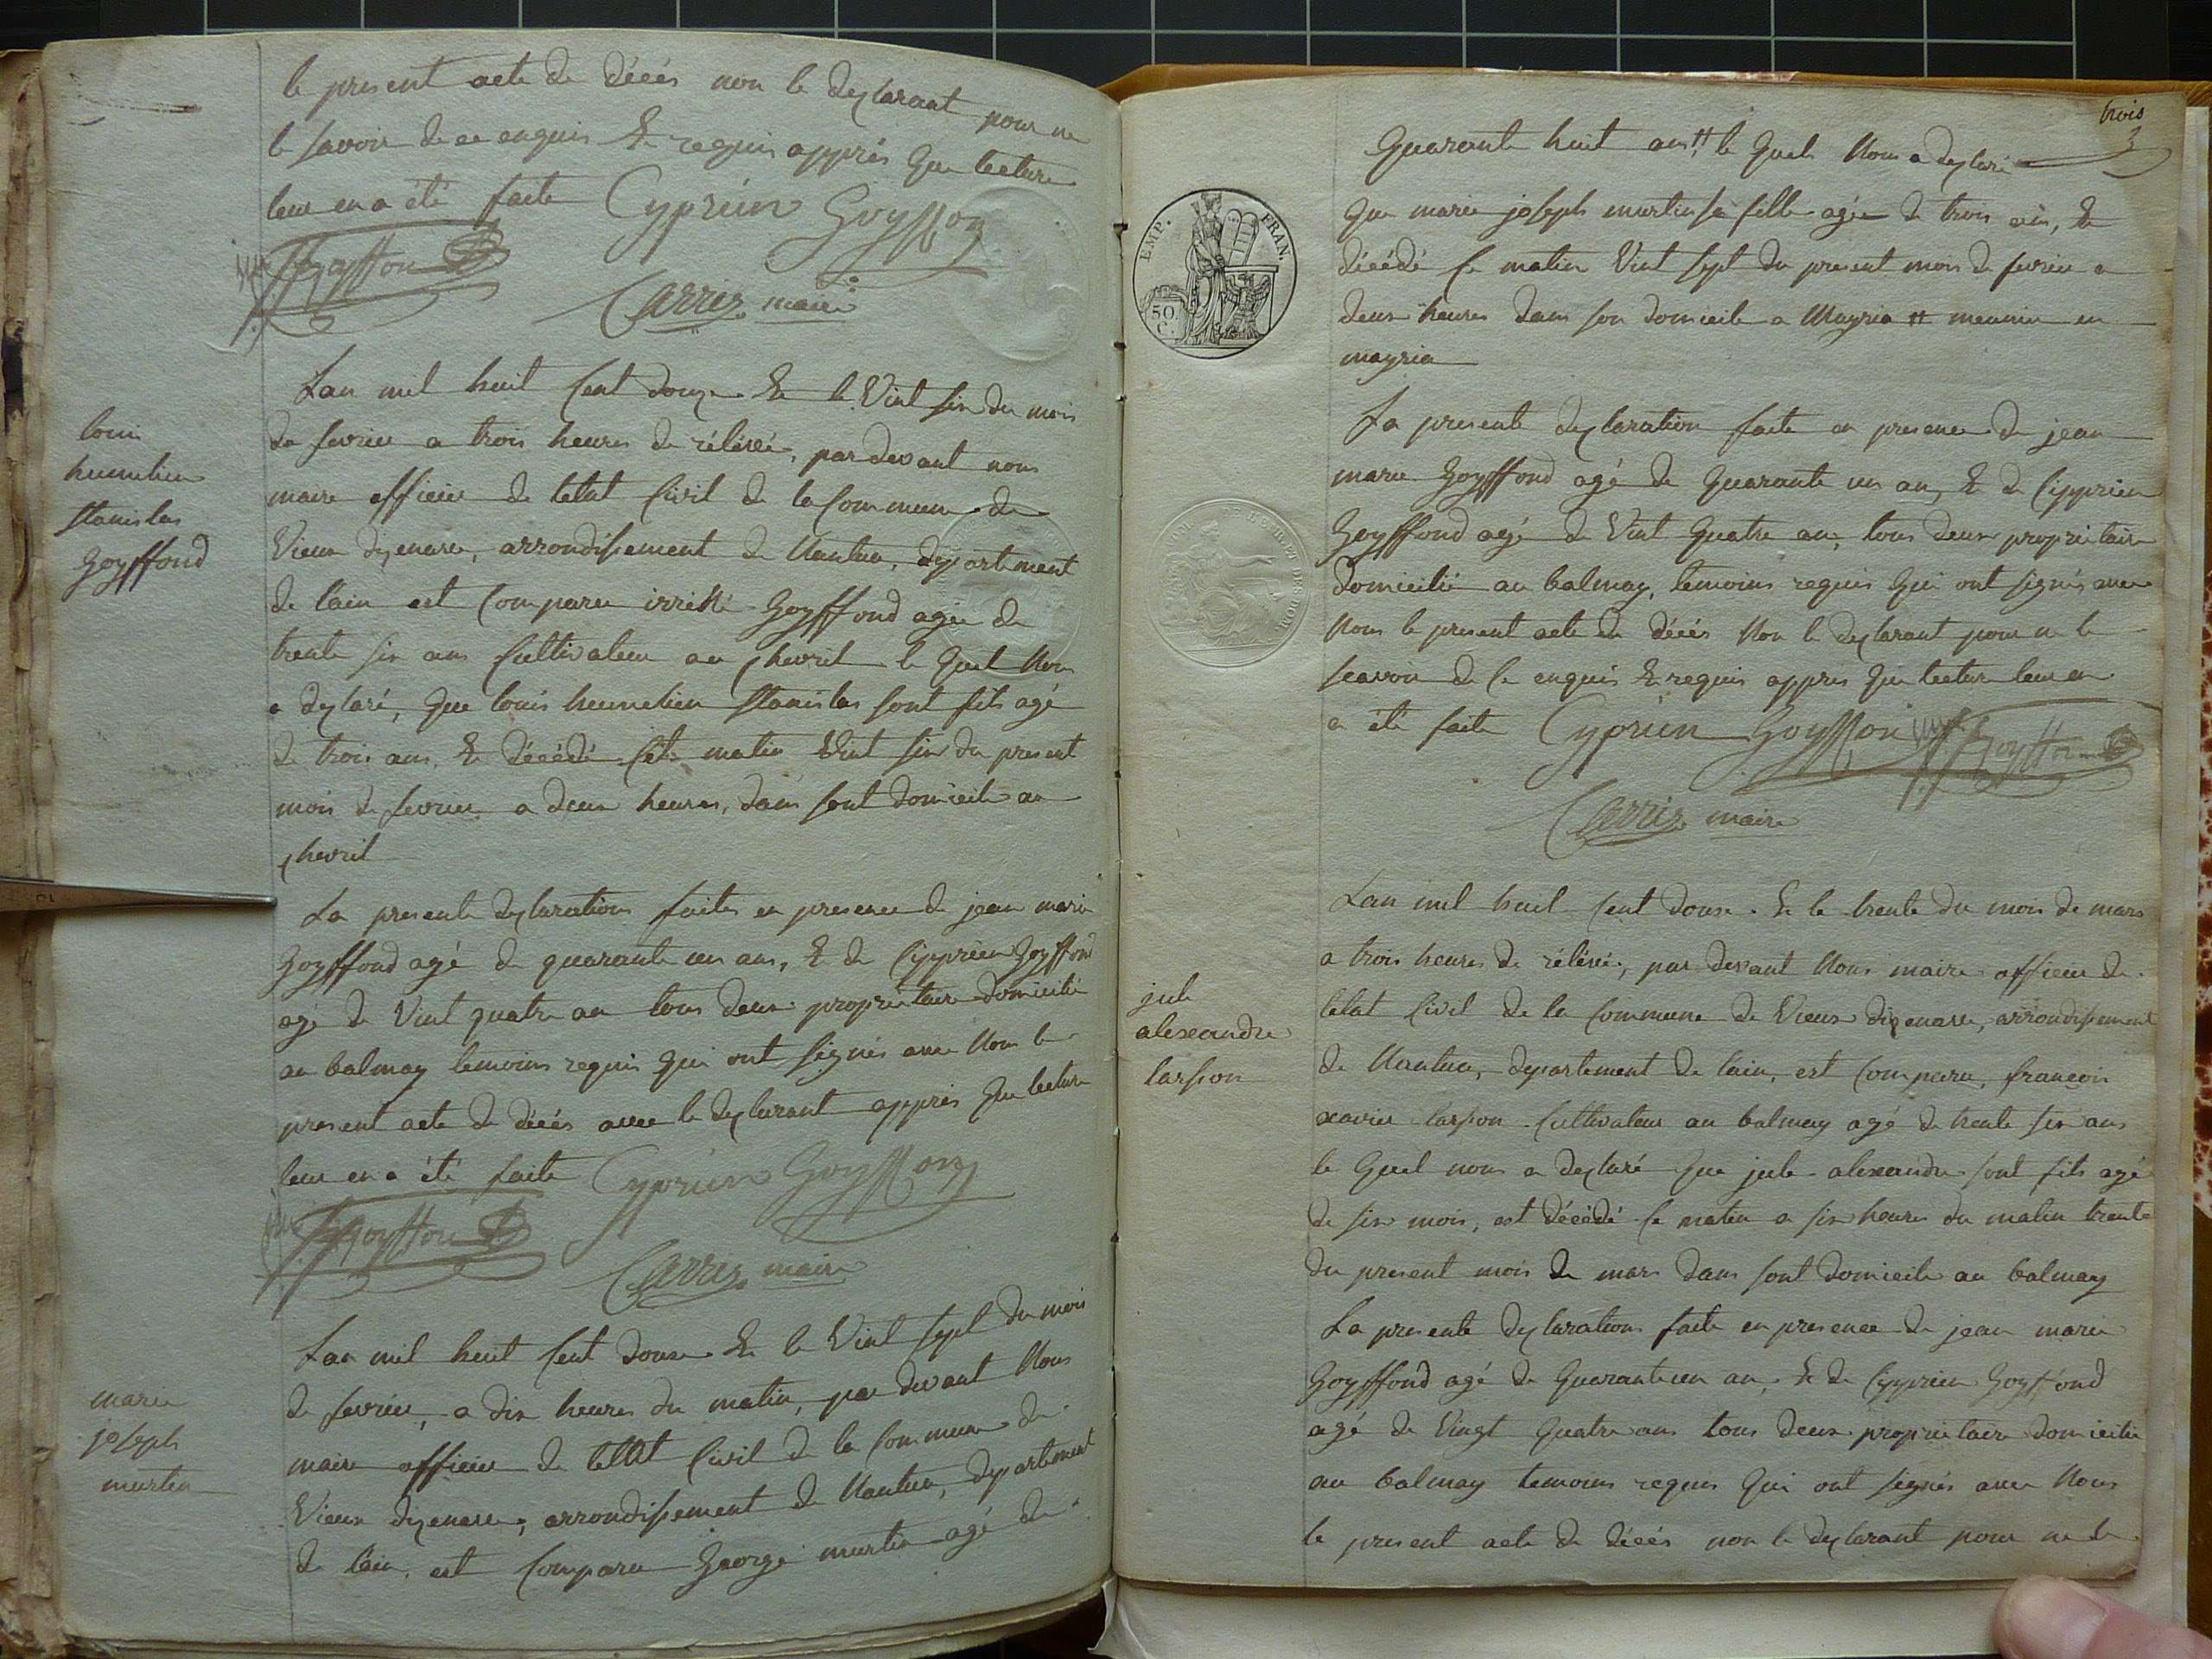 le present acte de décés non le deylarant pour ne
le savoir de ce enquis & requis apprés que lecture
leur en a été faite Cyprien Goyffon
Goyffon
Carrez maire
Lan mil huit Cent douze & le Vint six du mois
de fevrier a trois heures de rélévé, par devant nous
maire officier de letat Civil de la Commune de
Vieux dizenave, arrondissement de Nantua, departement
de lain est Comparu Goyffond agée de
trente six ans Cultivateur au Chevril le quel Nous
a deylaré, que louis humelien Stanislas sont fils agé
de trois ans, & décédé Cet matin Vint six du present
mois de fevrier a deux heures, dans sont domicile au
Chevril
louis
humelien
Stanislas
Goyffond
La presente deylaration faite en presence de jean marie
Goyffond agé de quarante un ans, & de Cipprien Goyffond
age de Vint quatre an tous deux proprietaire domicilié
au balmay temoins requis qui ont signés avec Nous le
present acte de décés avec le deylarant apprés que lecture
leur en a été faite Cyprien Goyffon
Goyffon
Carrez maire
Lan mil huit Cent douze & le Vint sept du mois
de fevrier, a dix heures du matin, par devant Nous
maire officier de letat Civil de la Commune de
Vieux dizenave, arrondissement de Nantua, departement
de lain, est Comparu George murtin agé de
marie
joseph
murtin
trois
3
Quarante huit ans le quels Nous a deylaré
que marie joseph murtin sa fille agée de trois ans, &
décédé Ce matin Vint sept du present mois de fevrier a
deux heures dans son domicile a Mayria en
mayria
EMP. FRAN.
50.
C.
La presente deylaration faite en presence de jean
marie Goyffond agé de Quarante un an, & de Cipprien
Goyffond agé de Vint Quatre an, tous deux proprietaire
domicilié au balmay, temoins requis qui ont signés avec
Nous le present acte de décés Non le deylarant pour ne le
scavoir de Ce enquis & requis appres que lecture leur en
a été faite Cyprien Goyffon Goyffon
Carrez maire
Lan mil huit Cent douze & le trente du mois de mars
a trois heures de rélévé, par devant Nous maire officier de
letat Civil de la Commune de Vieux dizenave, arrondissement
de Nantua, departement de lain, est Comparu, françois
xavier Carrson Cultivateur au balmay agé de trente six ans
le Quel nous a deylaré que jule alexandre sont fils agé
de six mois, est décédé Ce matin a six heures du matin trente
du present mois de mars dans sont domicile au balmay
jule
alexandre
La presente deylaration faite en presence de jean marie
Goyffond agé de Quarante un an, & de Cipprien Goyffond
agé de Vingt Quatre ans tous deux proprietaire domicilié
au balmay temoins requis qui ont signés avec Nous
le present acte de décés non le deylarant pour ne le